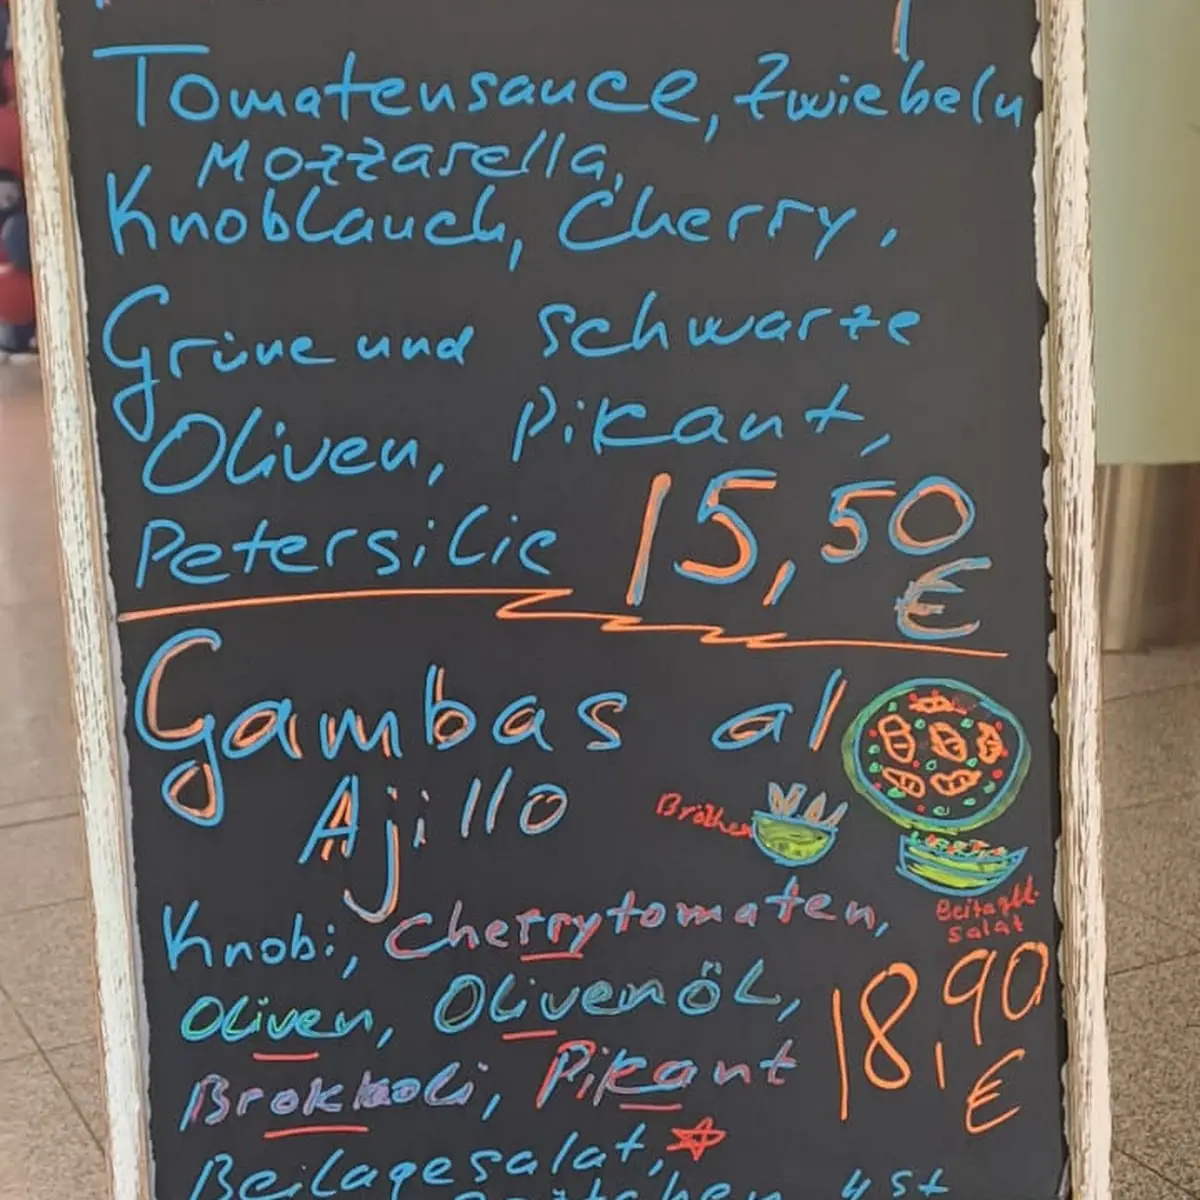 Tomatensauce, Zwiebeln
Mozzarella,
Knoblauch, Cherry,
Grüne und schwarze
Oliven, Pikant,
Petersilie 15,50
€
Gambas al
Ajillo
Brötchen
Knobi, Cherrytomaten,
Beilagen
salat
Oliven, Olivenöl,
18,90
€
Brokkoli, Pikant
Beilagesalat,
4 St